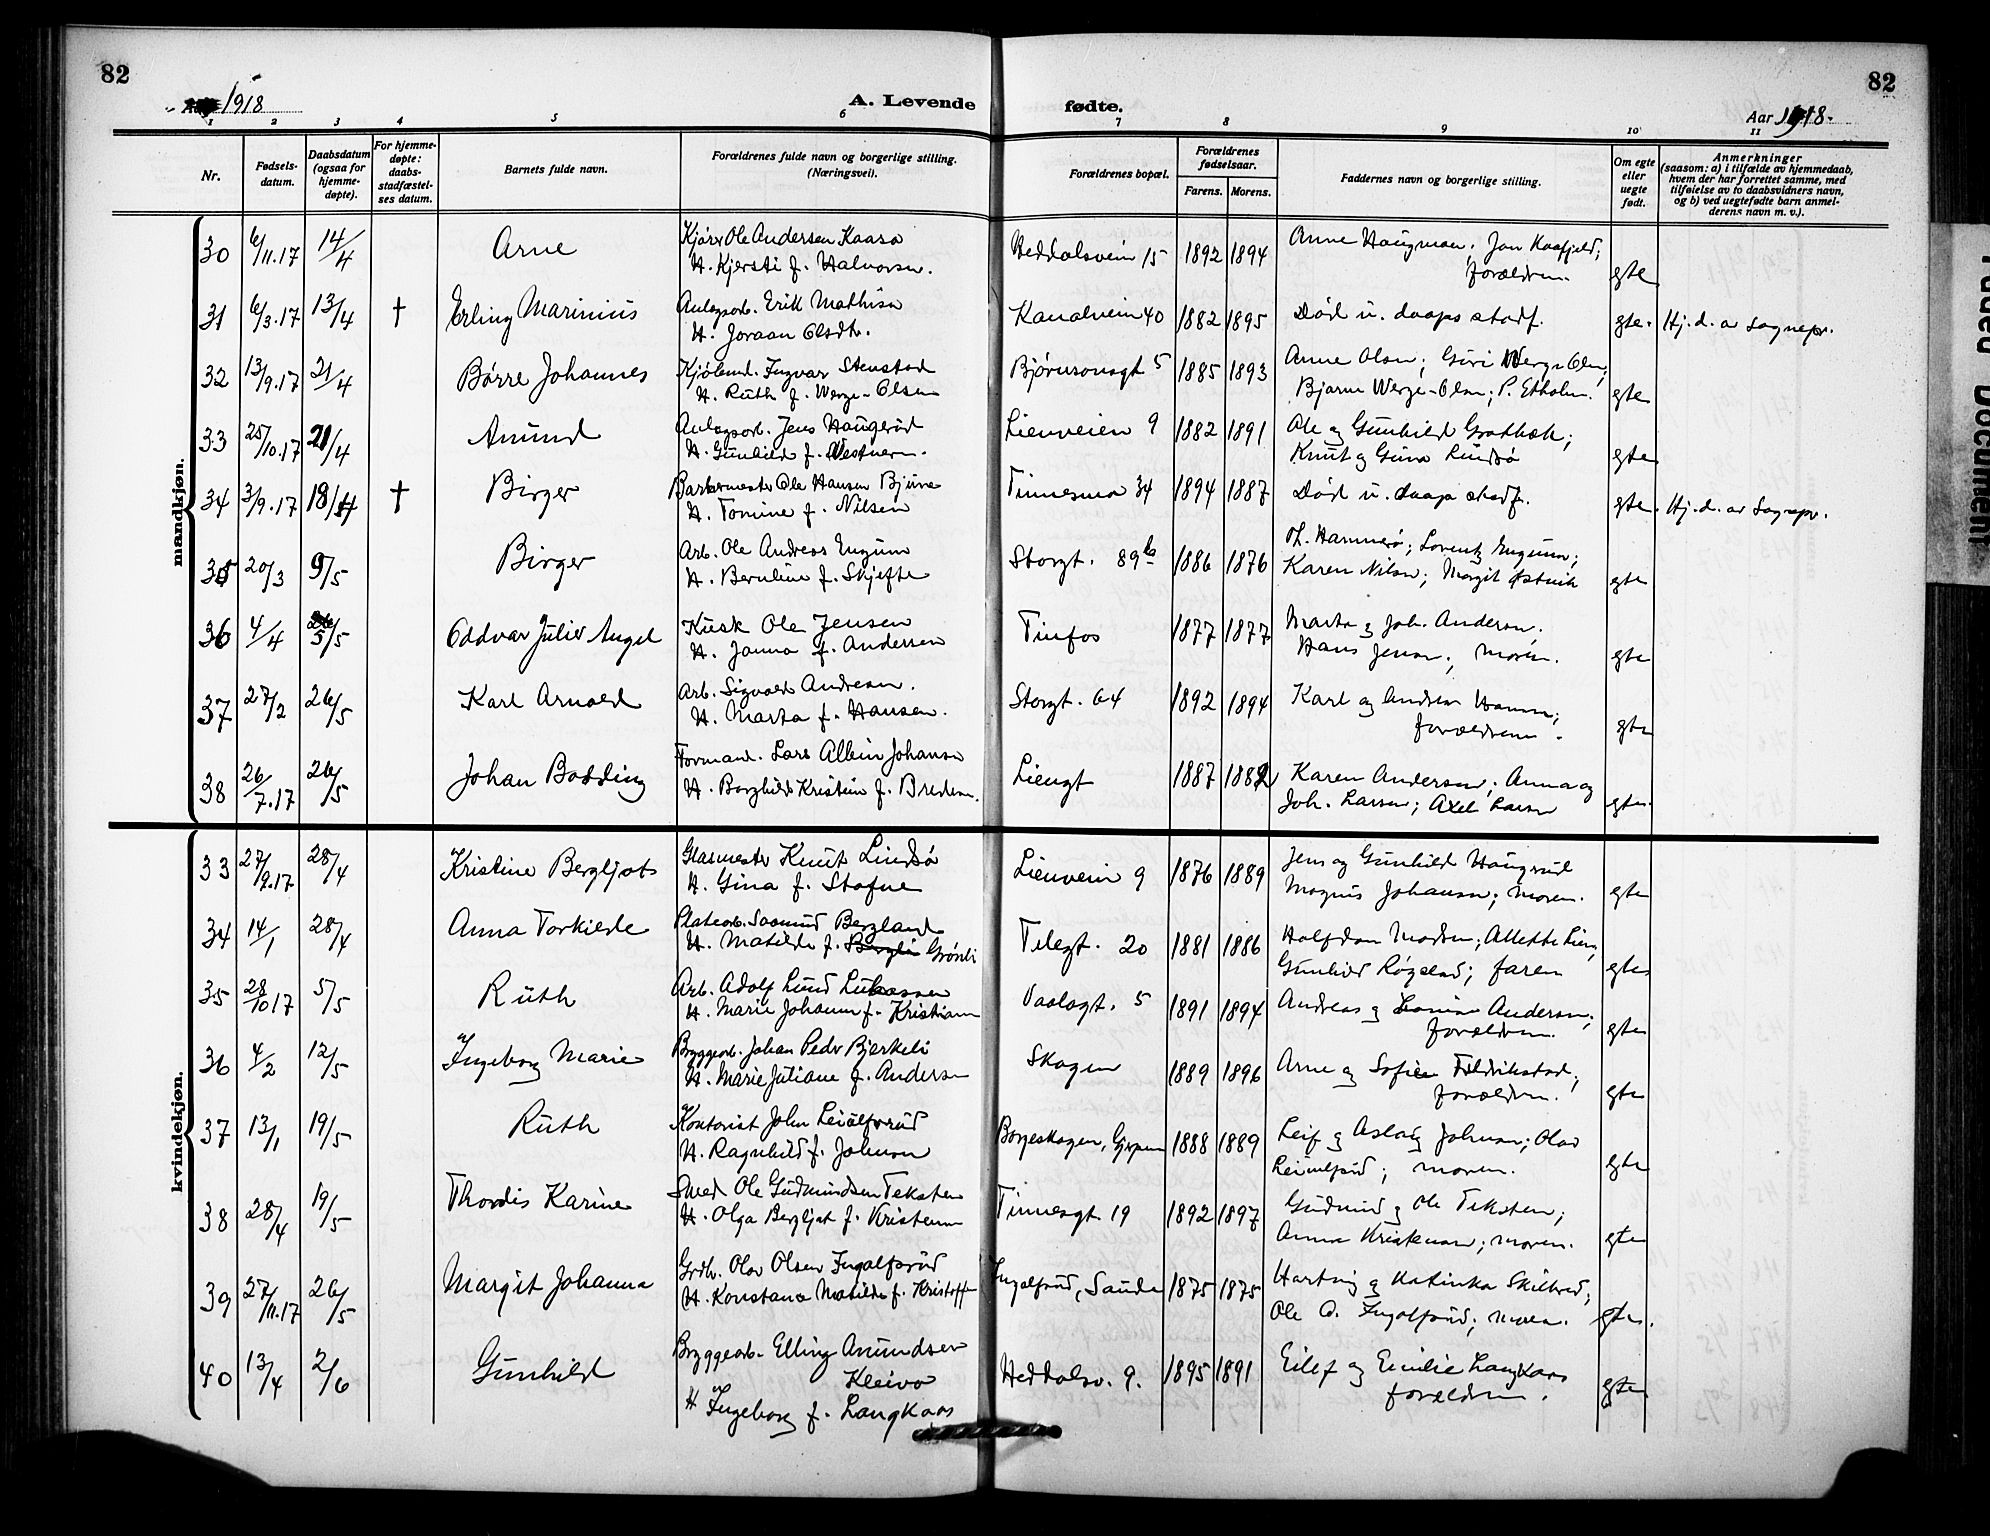 82
82
Aar 1918
A. Levende
fødte.
Aar 1918.
1 2 3 4 5 6 7 8 9 10 11
Nr.
Fødsels-
datum.
Daabsdatum
(ogsaa for
hjemme-
døpte).
For hjemme-
døpte:
daabs-
stadfæstel-
ses datum.
Barnets fulde navn.
Forældrenes fulde navn og borgerlige stilling.
(Næringsvei).
Forældrenes bopæl.
Forældrenes
fødselsaar.
Farens. Morens.
Faddernes navn og borgerlige stilling.
Om egte
eller
uegte
født.
Anmerkninger
(saasom: a) i tilfælde av hjemmedaab,
hvem der har forrettet samme, med
tilføielse av to daabsvidners navn,
og b) ved uegtefødte barn anmel-
derens navn m. v.).
mandkjøn.
30 6/11.17 14/4 Arne Kjører Ole Andersen Kaasa Heddalsveien 15 1892 1894 Anne Haugman; Jon Kaafjeld;
H. Kjersti f. Halvorsen. forældrene. egte
31 6/3.17 13/4 † Erling Marinius Anlegsarb. Erik Mathisen Kanalveien 40 1882 1895 Død u. daaps stadf. egte. Hj. d. av Sognepr.
H. Joraan Olsdtr.
32 13/9.17 21/4 Børre Johannes Kjøbmd. Ingvar Stenstad Bjørnsonsgt 5 1885 1893 Anne Olsen; Guri Werge-Olsen;
H. Ruth f. Werge-Olsen Bjarne Werge-Olsen; P. Etholm. egte
33 25/10.17 21/4 Anund Anlegsarb. Jens Haugerød Lienveien 9 1882 1891 Ole og Gunhild Grotbæk;
H. Gunhild f. Vestnern. Knut og Gina Lindsø egte
34 3/9.17 18/4 † Birger Barbermester Ole Hansen Bjune Tinnesmo 34 1894 1887 Død u. daaps stadf. egte. Hj. d. av Sognepr.
H. Tomine f. Nilsen
35 20/3 9/5 Birger Arb. Ole Andreas Engum Storgt. 89b 1886 1876 Th. Hammerø; Lorentz Engum;
H. Berntine f. Skjefte Karen Nilsen; Margit Østvik egte
36 4/4 5/5 Oddvar Julier Angel Kusk Ole Jensen Tinfos 1877 1877 Marta og Joh. Andersen;
H. Janna f. Andersen Hans Jensen; moren. egte
37 27/2 26/5 Karl Arnold Arb. Sigvald Andresen. Storgt. 64 1892 1894 Karl og Andrea Hansen;
H. Marta f. Hansen. forældrene. egte
38 26/7.17 26/5 Johan Bodding Formand. Lars Albin Johansen Liengt 1887 1882 Karen Andersen; Anna og
H. Borghild Kristine f. Bredesen. Joh. Larsen; Axel Larsen egte
kvindekjøn.
33 27/9.17 28/4 Kristine Bergljot Glasmester Knut Lindsø Lienveien 9 1876 1889 Jens og Gunhild Haugerud
H. Gina f. Stafne Magnus Johansen; moren. egte
34 14/1 28/4 Anna Torkilde Platearb. Saamund Bergland Telegt. 20 1881 1886 Halfdan Madsen; Allette Lien;
H. Matilde f. Bergli Grønli Gunhild Røgeland; faren egte
35 28/10 17 5/5 Ruth Arb. Adolf Lund Lukassen Vaalagt. 5 1891 1894 Andreas og Andersen;
H. Marie Johanne f. Kristiansen forældrene. egte
36 4/2 12/5 Ingeborg Marie Bryggearb. Johan Peder Bjerkeli Skogen 1889 1896 Arne og Sofie Fredrikstad;
H. Marie Juliane f. Andersen forældrene. egte
37 13/1 19/5 Ruth Kontorist John Leiulfsrud Borgeskogen, Gjerpen 1888 1889 Leif og Aslaug Johnsen; Olav
H. Ragnhild f. Johnsen Leiulfsrud; moren. egte
38 28/4 19/5 Thordis Karine Smed Ole Gudmundsen Teksten Tinnesgt. 19 1892 1897 Gudmund og Ole Teksten;
H. Olga Bergljot f. Kristensen Anna Kristensen; moren. egte
39 27/11.17 26/5 Margit Johanna Grdb. Olav Olsen Ingolfsrud Ingolfsrud, Saude 1875 1875 Hartvig og Katinka Skilbred;
H. Konstanse Matilde f. Kristoffersen Ole O. Ingolfsrud; moren. egte.
40 13/4 2/6 Gunhild Bryggearb. Elling Amundsen Heddalsv. 9. 1895 1891 Eilef og Emilie Langkaas
Kleiva forældrene. egte
H Ingeborg f. Langkaas